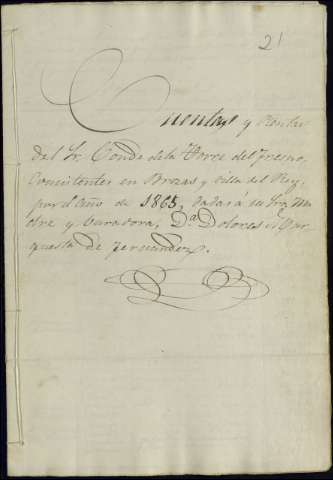 21
Cuentas y Rentas
del Sr. Conde de la Torre del Fresno.
Consistentes en Brozas y Villa del Rey,
por el Año de 1865, dadas á su Sra. Ma
dre y Curadora, Da. Dolores
de Fernandez.